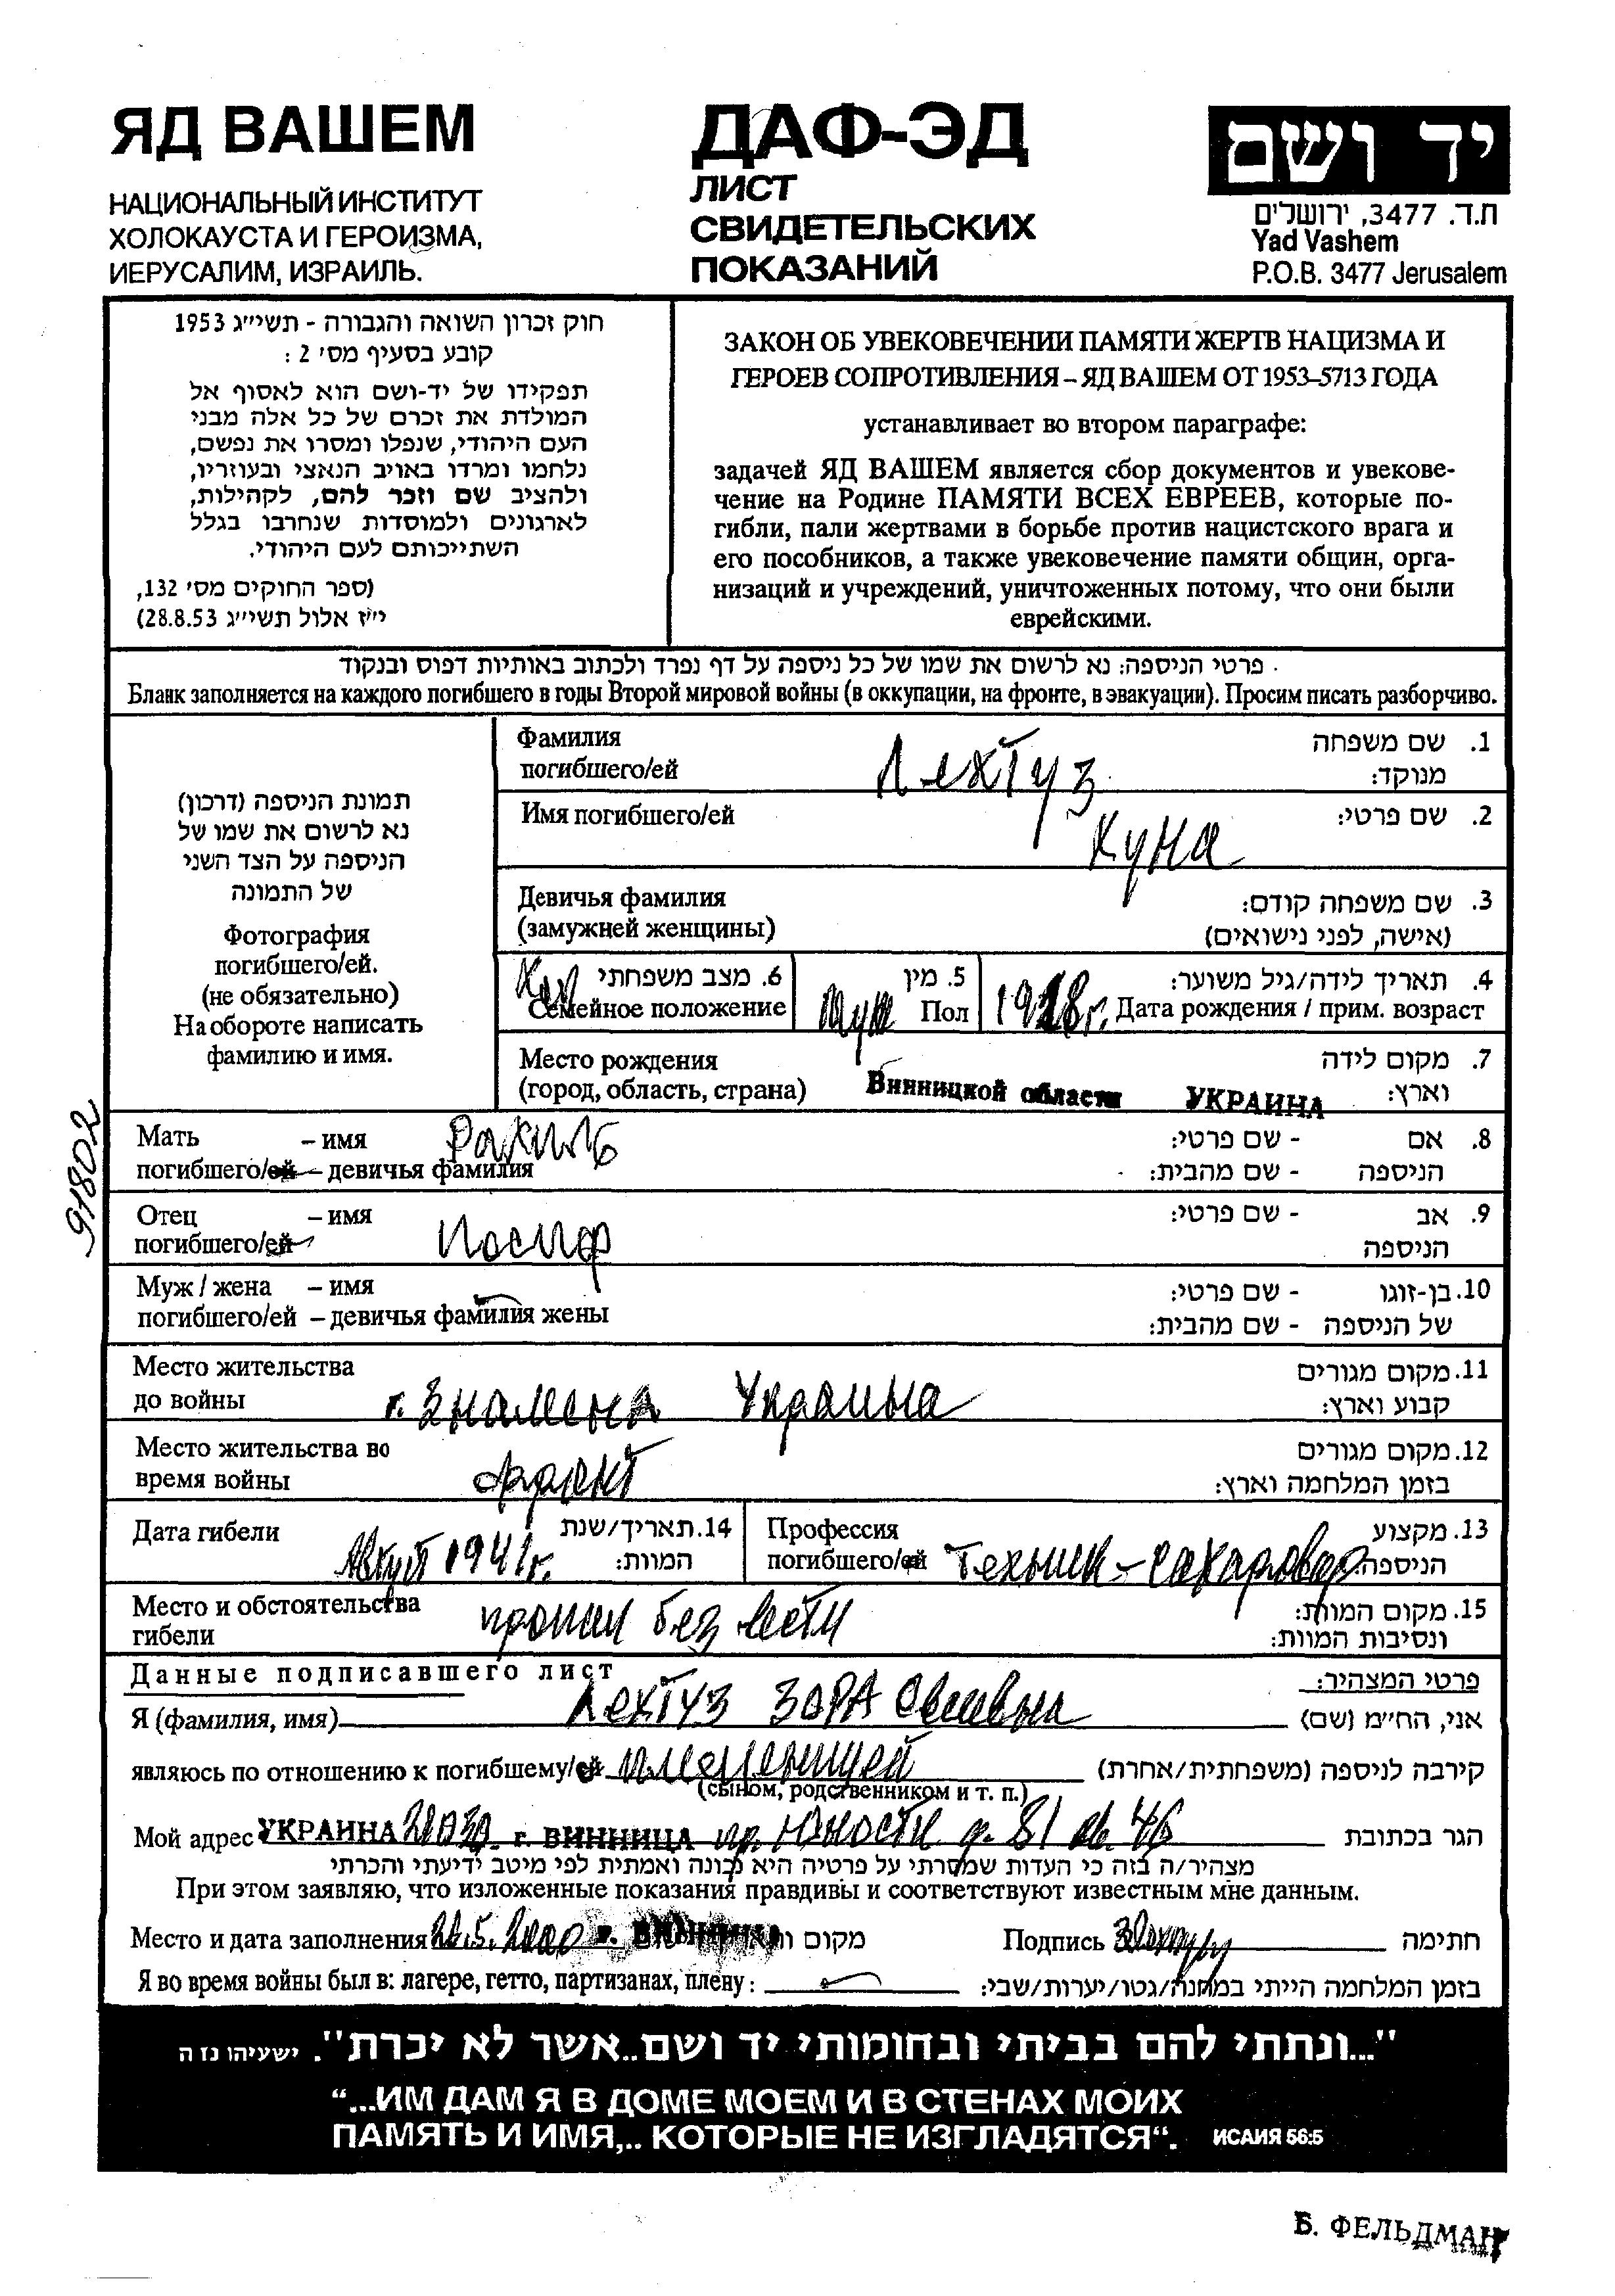 ЯД ВАШЕМ
НАЦИОНАЛЬНЫЙ ИНСТИТУТ
ХОЛОКАУСТА И ГЕРОИЗМА,
ИЕРУСАЛИМ, ИЗРАИЛЬ.
ДАФ-ЭД
ЛИСТ
СВИДЕТЕЛЬСКИХ
ПОКАЗАНИЙ
יד ושם
ת.ד. 3477, ירושלים
Yad Vashem
P.O.B. 3477 Jerusalem
חוק זכרון השואה והגבורה - תשי״ג 1953
קובע בסעיף מס׳ 2 :
תפקידו של יד-ושם הוא לאסוף אל
המולדת את זכרם של כל אלה מבני
העם היהודי, שנפלו ומסרו את נפשם,
נלחמו ומרדו באויב הנאצי ובעוזריו,
ולהציב שם וזכר להם, לקהילות,
לארגונים ולמוסדות שנחרבו בגלל
השתייכותם לעם היהודי.
(ספר החוקים מס׳ 132,
י״ז אלול תשי״ג 28.8.53)
ЗАКОН ОБ УВЕКОВЕЧЕНИИ ПАМЯТИ ЖЕРТВ НАЦИЗМА И
ГЕРОЕВ СОПРОТИВЛЕНИЯ – ЯД ВАШЕМ ОТ 1953–5713 ГОДА
устанавливает во втором параграфе:
задачей ЯД ВАШЕМ является сбор документов и увекове-
чение на Родине ПАМЯТИ ВСЕХ ЕВРЕЕВ, которые по-
гибли, пали жертвами в борьбе против нацистского врага и
его пособников, а также увековечение памяти общин, орга-
низаций и учреждений, уничтоженных потому, что они были
еврейскими.
פרטי הניספה: נא לרשום את שמו של כל ניספה על דף נפרד ולכתוב באותיות דפוס ובנקוד
Бланк заполняется на каждого погибшего в годы Второй мировой войны (в оккупации, на фронте, в эвакуации). Просим писать разборчиво.
תמונת הניספה (דרכון)
נא לרשום את שמו של
הניספה על הצד השני
של התמונה
Фотография
погибшего/ей.
(не обязательно)
На обороте написать
фамилию и имя.
Фамилия
погибшего/ей Лехтуз
1. שם משפחה
מנוקד:
Имя погибшего/ей Куна 2. שם פרטי:
Девичья фамилия
(замужней женщины)
3. שם משפחה קודם:
(אישה, לפני נישואים)
6. מצב משפחתי
Семейное положение
5. מין
Пол муж
4. תאריך לידה/גיל משוער:
Дата рождения / прим. возраст
Место рождения
(город, область, страна) Винницкой области УКРАИНА
7. מקום לידה
וארץ:
91802
Мать – имя Рахиль
погибшего/ей – девичья фамилия
8. אם - שם פרטי:
הניספה - שם מהבית:
Отец – имя
погибшего/ей Иосиф
9. אב - שם פרטי:
הניספה
Муж / жена – имя
погибшего/ей – девичья фамилия жены
10. בן-זוגו - שם פרטי:
של הניספה - שם מהבית:
Место жительства
до войны г. Знамена Украина
11. מקום מגורים
קבוע וארץ:
Место жительства во
время войны фронт
12. מקום מגורים
בזמן המלחמה וארץ:
Дата гибели Август 1941г.
14. תאריך/שנת
המוות:
Профессия
погибшего/ей Техник-сахаровар
13. מקצוע
הניספה:
Место и обстоятельства
гибели пропал без вести
15. מקום המוות:
ונסיבות המוות:
Данные подписавшего лист פרטי המצהיר:
Я (фамилия, имя) Лехтуз ЗАРА אני, הח״מ (שם)
являюсь по отношению к погибшему/ей племянницей קירבה לניספה (משפחתית/אחרת)
(сыном, родственником и т. п.)
Мой адрес УКРАИНА г. ВИННИЦА пр. Юности д. 81 кв. 46 הגר בכתובת
מצהיר/ה בזה כי העדות שמסרתי על פרטיה היא נכונה ואמתית לפי מיטב ידיעתי והכרתי
При этом заявляю, что изложенные показания правдивы и соответствуют известным мне данным.
Место и дата заполнения 22.5.2000 г. ВИННИЦА מקום Подпись חתימה
Я во время войны был в: лагере, гетто, партизанах, плену: – בזמן המלחמה הייתי במחנה/גטו/יערות/שבי:
"...ונתתי להם בביתי ובחומותי יד ושם..אשר לא יכרת". ישעיהו נז ה
“...ИМ ДАМ Я В ДОМЕ МОЕМ И В СТЕНАХ МОИХ
ПАМЯТЬ И ИМЯ,.. КОТОРЫЕ НЕ ИЗГЛАДЯТСЯ“. ИСАИЯ 56:5
Б. ФЕЛЬДМАН